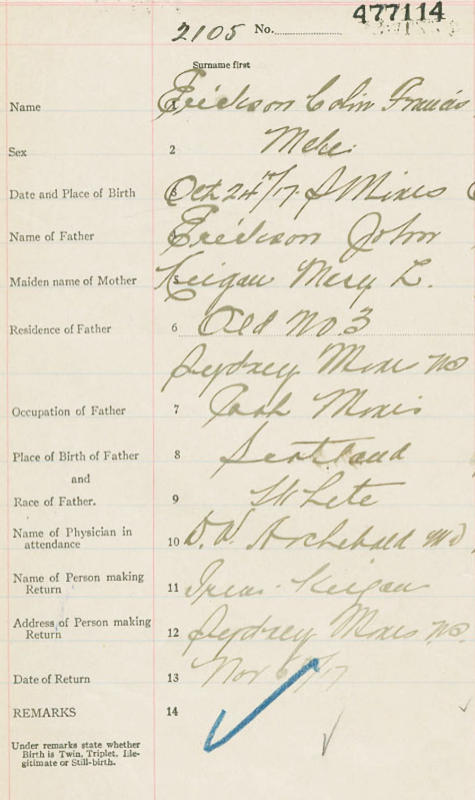 477114
2105 No.
Surname first
Name 1 Erickson Colin Francis
Sex 2 Male
Date and Place of Birth 3 Oct 24th/17. S Mines
Name of Father 4 Erickson John
Maiden name of Mother 5 Keigan Mary L.
Residence of Father 6 Old No 3
Sydney Mines NS
Occupation of Father 7 Coal
Place of Birth of Father 8 Scotland
and
Race of Father. 9 White
Name of Physician in
attendance 10 D. W. Archibald M.D.
Name of Person making
Return 11 Keigan
Address of Person making
Return 12 Sydney Mines NS.
Date of Return 13 Nov /17
REMARKS 14
Under remarks state whether
Birth is Twin, Triplet, Ille-
gitimate or Still-birth.